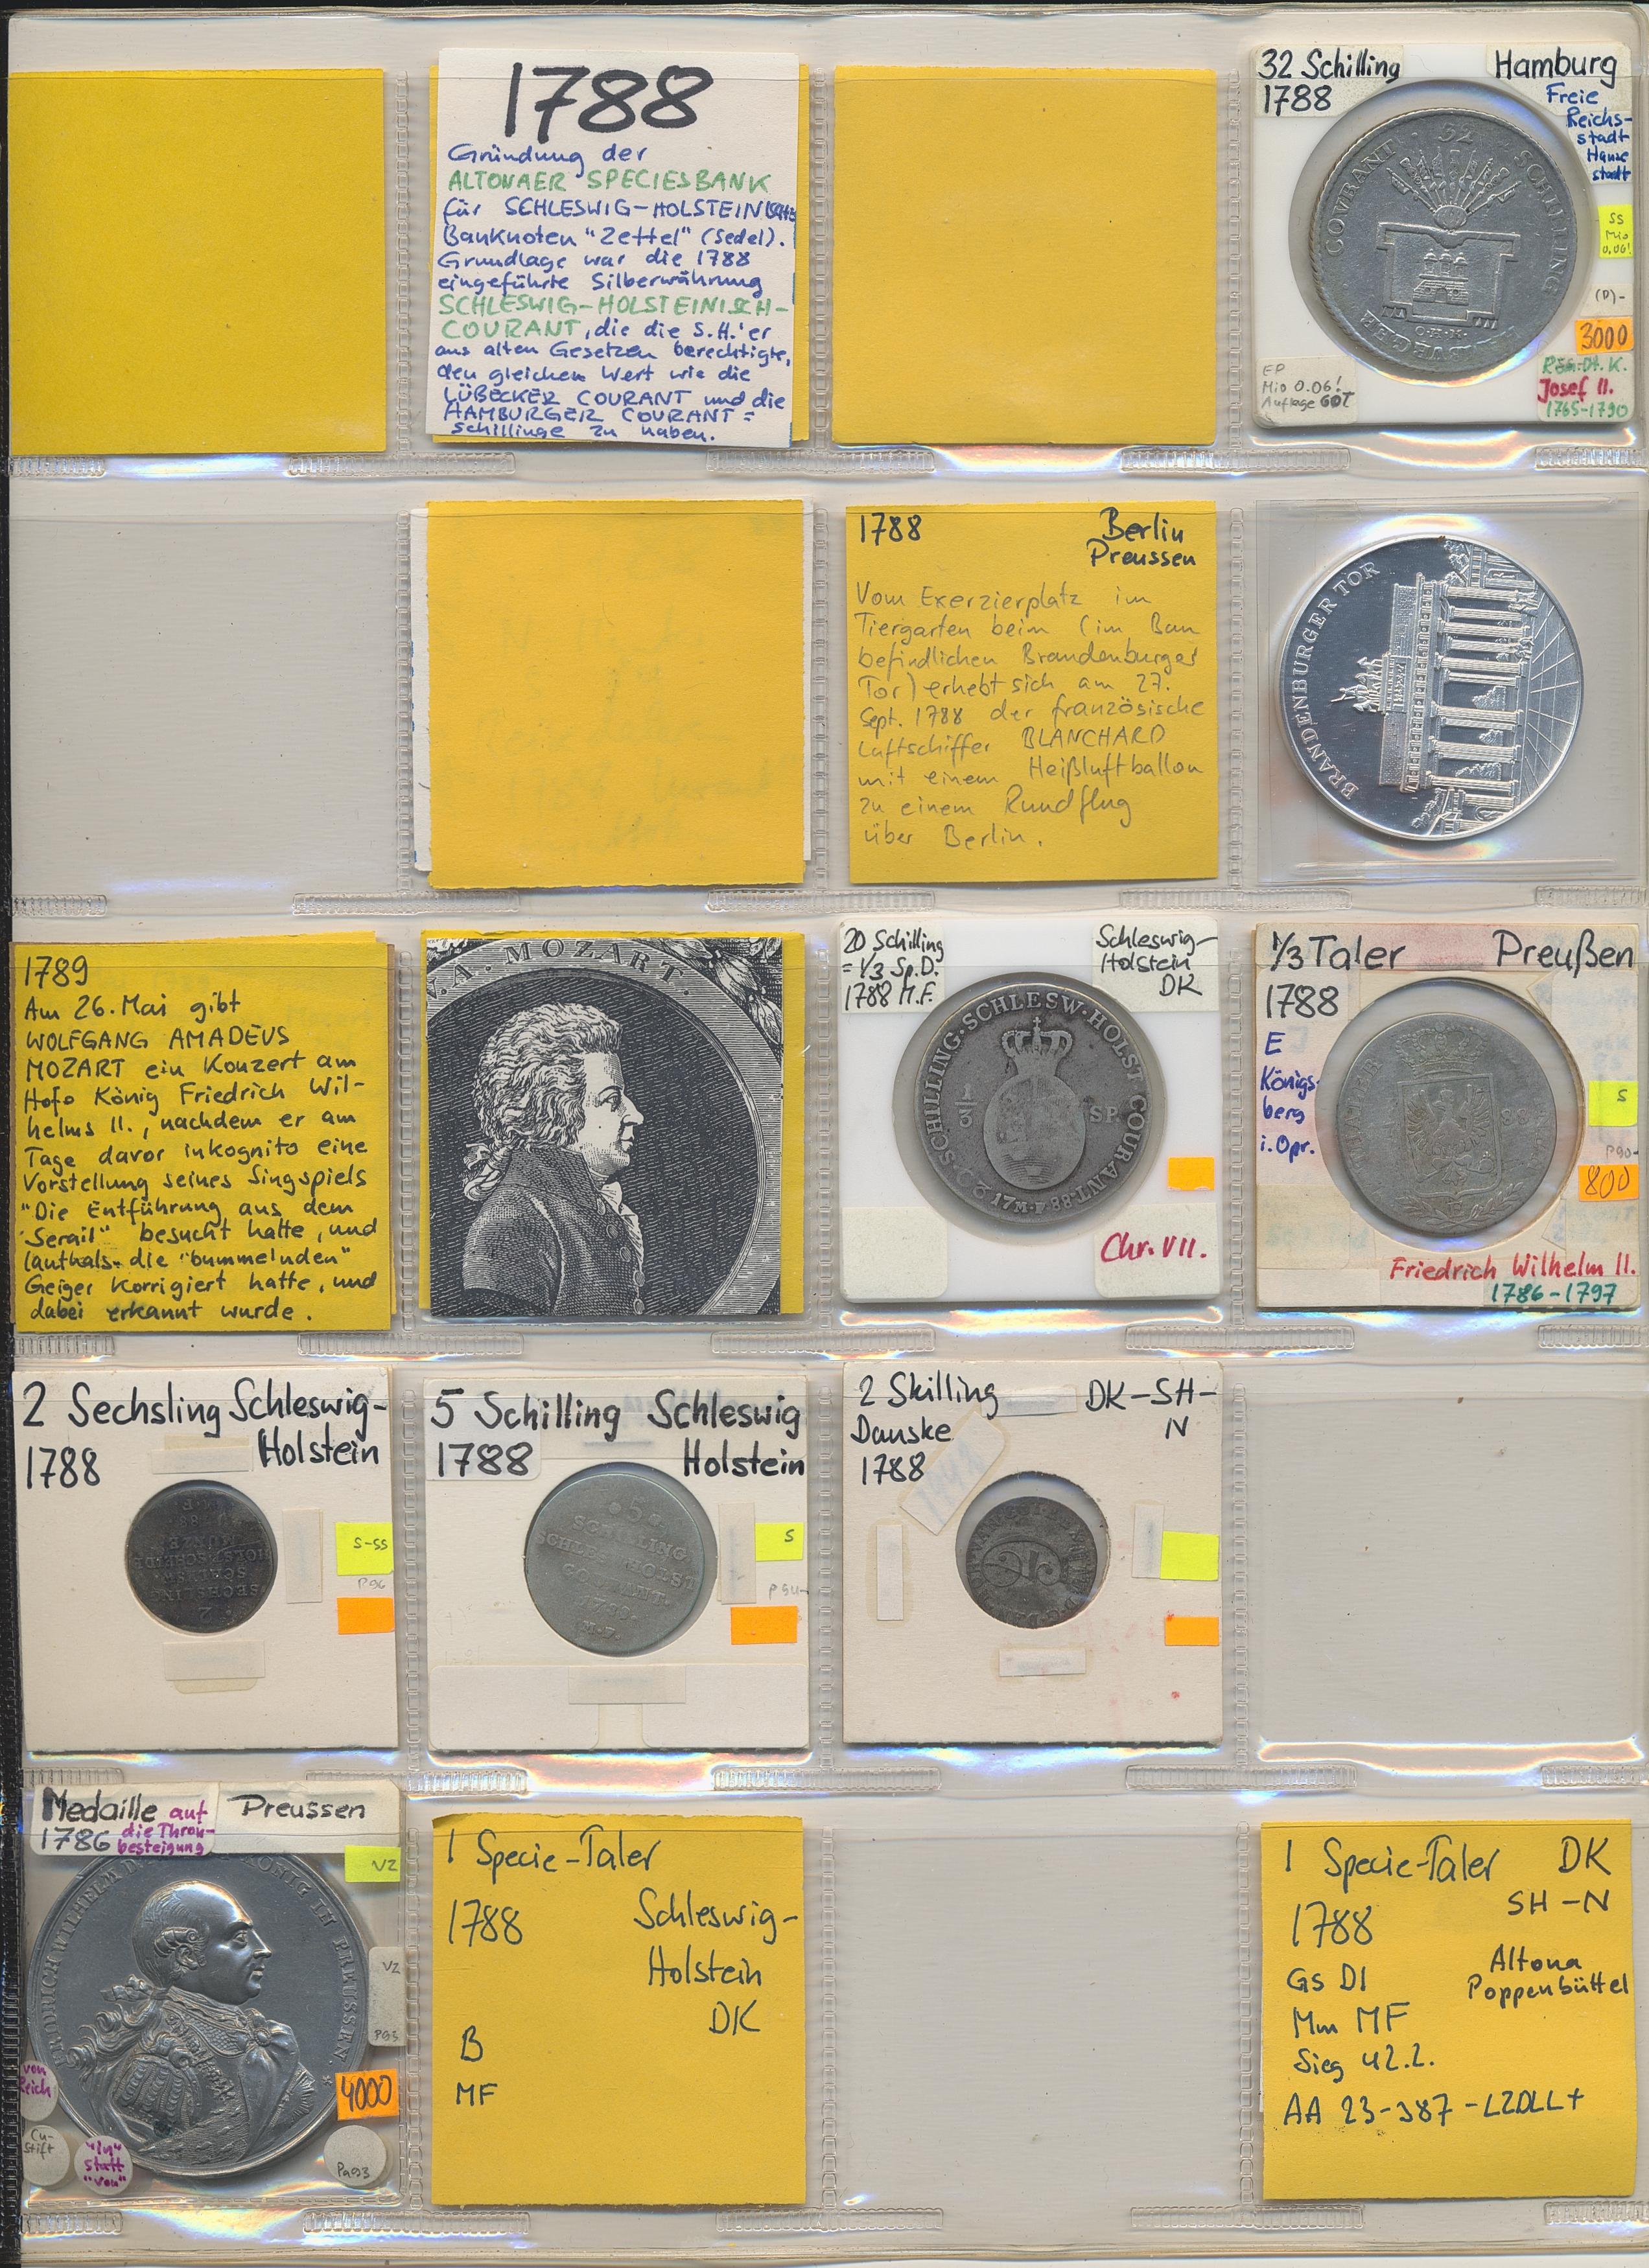 1788
Gründung der
ALTONAER SPECIESBANK
für SCHLESWIG-HOLSTEINische
Banknoten "Zettel" (Sedel).
Grundlage war die 1788
eingeführte Silberwährung
SCHLESWIG-HOLSTEINISCH-
COURANT, die die S.H.'er
aus alten Gesetzen berechtigte,
den gleichen Wert wie die
LÜBECKER COURANT und die
HAMBURGER COURANT =
schillinge zu haben.
32 Schilling Hamburg
1788
Freie
Reichs-
stadt
Hanse
stadt
COURANT 32 SCHILLING
HAMBURGER
O.H.K.
SS
Mio
0.06!
(D)-
3000
REG:Dt. K.
Josef II.
1765-1790
EP
Mio 0.06!
Auflage GDT
1788 Berlin
Preussen
Vom Exerzierplatz im
Tiergarten beim (im Bau
befindlichen Brandenburger
Tor) erhebt sich am 27.
Sept. 1788 der französische
Luftschiffer BLANCHARD
mit einem Heißluftballon
zu einem Rundflug
über Berlin.
BRANDENBURGER TOR
1789
Am 26. Mai gibt
WOLFGANG AMADEUS
MOZART ein Konzert am
Hofe König Friedrich Wil-
helms II., nachdem er am
Tage davor inkognito eine
Vorstellung seines Singspiels
"Die Entführung aus dem
Serail" besucht hatte, und
lauthals die "bummelnden"
Geiger korrigiert hatte, und
dabei erkannt wurde.
W.A. MOZART.
20 Schilling
= 1/3 Sp.D.
1788 M.F.
Schleswig-
Holstein
DK
20·SCHILLING·SCHLESW·HOLST COURANT
1/3 SP.
17 M·F 88
Chr. VII.
1/3 Taler Preußen
1788
E
Königs-
berg
i. Opr.
S
P90-
800
E
Friedrich Wilhelm II.
1786-1797
2 Sechsling Schleswig-
1788 Holstein
2
SECHSLING
SCHLESW
HOLST SCHEIDE
MÜNZE
S-SS
P96
5 Schilling Schleswig
1788 Holstein
·5·
SCHILLING
SCHLES HOLST
COURANT.
M.F.
S
P90-
2 Skilling DK-SH-
Danske N
1788
Medaille auf
1786 die Thron-
besteigung
Preussen
VZ
FRIEDRICH WILHELM D KÖNIG IN PREUSSEN.
VZ
P93
von
Reich
4000
Cu-
Stift
"in"
statt
"von"
Pa93
1 Specie-Taler
1788 Schleswig-
Holstein
DK
B
MF
1 Specie-Taler DK
SH-N
1788
Altona
Poppenbüttel
Gs D1
Mm MF
Sieg 42.2.
AA 23-387-LZDLL+